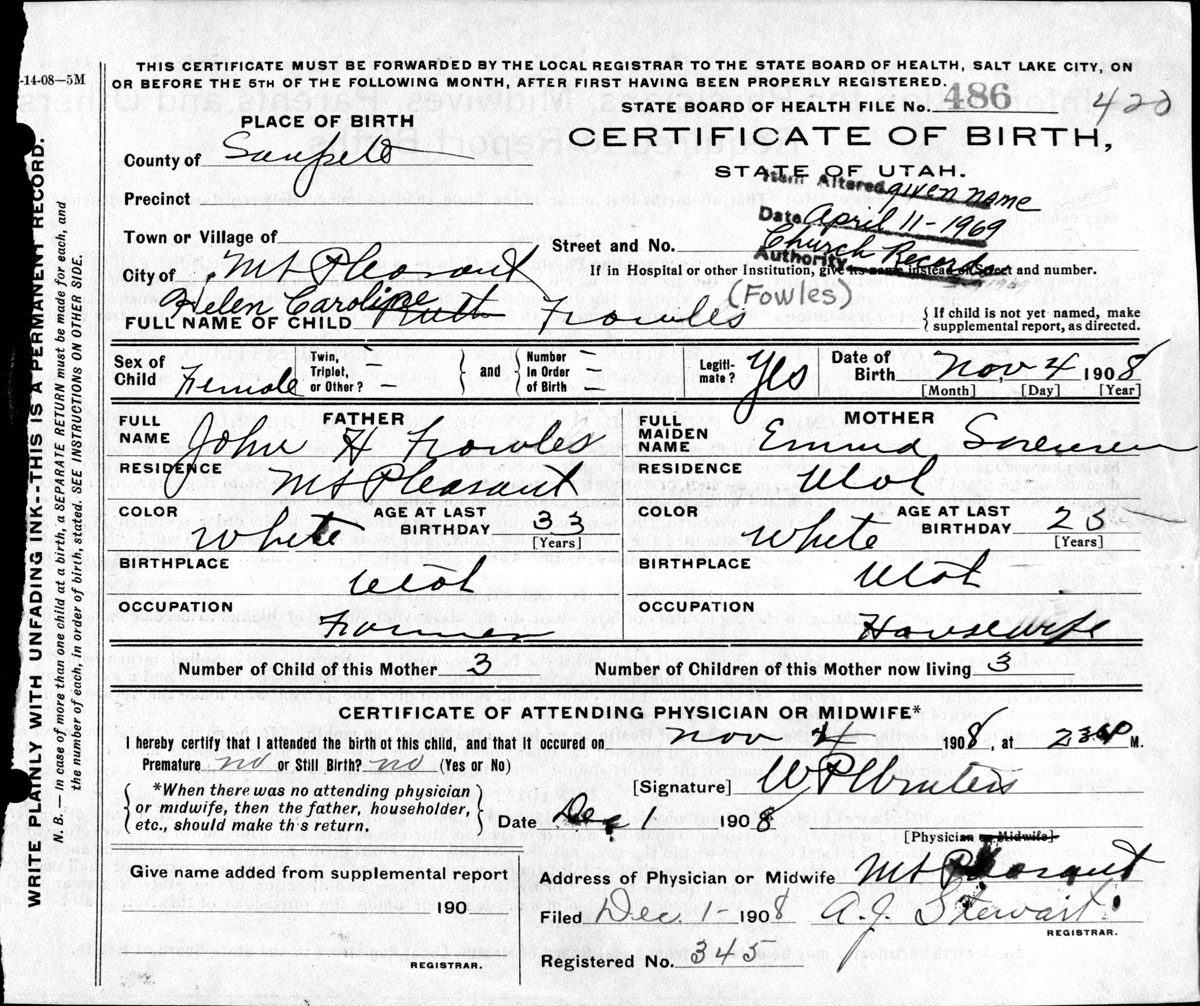 -14-08—5M
THIS CERTIFICATE MUST BE FORWARDED BY THE LOCAL REGISTRAR TO THE STATE BOARD OF HEALTH, SALT LAKE CITY, ON
OR BEFORE THE 5TH OF THE FOLLOWING MONTH, AFTER FIRST HAVING BEEN PROPERLY REGISTERED.
WRITE PLAINLY WITH UNFADING INK--THIS IS A PERMANENT RECORD.
N. B.— In case of more than one child at a birth, a SEPARATE RETURN must be made for each, and
the number of each, in order of birth, stated. SEE INSTRUCTIONS ON OTHER SIDE.
STATE BOARD OF HEALTH FILE No. 486 420
PLACE OF BIRTH
CERTIFICATE OF BIRTH,
STATE OF UTAH.
County of Sanpete
Item Altered given name
Precinct
Date April 11-1969
Town or Village of
Street and No.
Church Records
Authority
City of Mt Pleasant
If in Hospital or other Institution, give its name instead of Street and number.
Helen Caroline (Fowles)
FULL NAME OF CHILD Ruth Fowles
{ If child is not yet named, make
supplemental report, as directed.
Sex of Child Female
Twin, Triplet, or Other? –
} and {
Number In Order of Birth –
Legiti-mate? Yes
Date of Birth Nov 4 1908
[Month] [Day] [Year]
FATHER
FULL NAME John H Fowles
MOTHER
FULL MAIDEN NAME Emma Sorensen
RESIDENCE Mt Pleasant
RESIDENCE Utah
COLOR White
AGE AT LAST BIRTHDAY 33
[Years]
COLOR White
AGE AT LAST BIRTHDAY 25
[Years]
BIRTHPLACE Utah
BIRTHPLACE Utah
OCCUPATION Farmer
OCCUPATION Housewife
Number of Child of this Mother 3
Number of Children of this Mother now living 3
CERTIFICATE OF ATTENDING PHYSICIAN OR MIDWIFE*
I hereby certify that I attended the birth of this child, and that it occured on Nov 4 1908, at P M.
Premature no or Still Birth? no (Yes or No)
[Signature] W P Winters
{ *When there was no attending physician
or midwife, then the father, householder,
etc., should make th's return. }
Date Dec 1 1908
[Physician or Midwife]
Give name added from supplemental report
190
REGISTRAR.
Address of Physician or Midwife Mt Pleasant
Filed Dec. 1- 1908 A. J. Stewart
REGISTRAR.
Registered No. 345